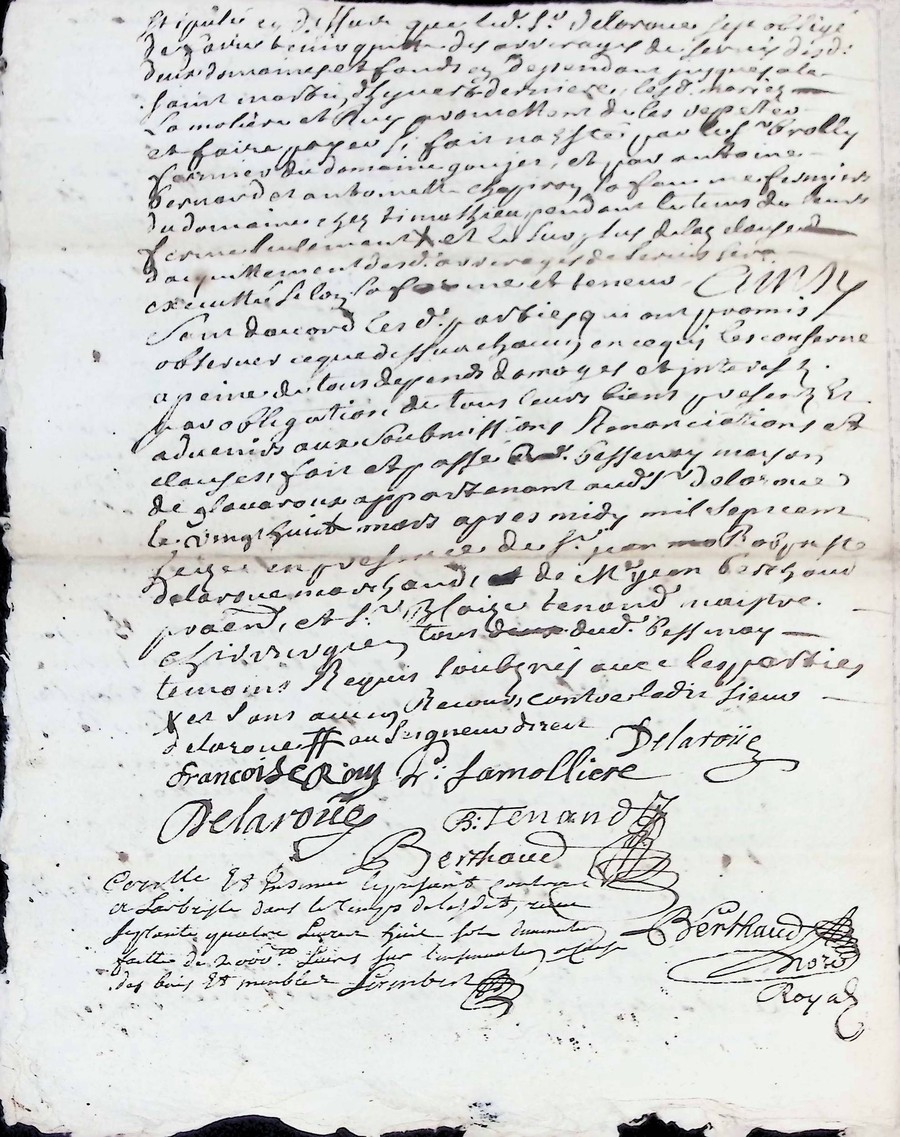 stipulé cy dessus que led. Sr. Delaroue sest obligé
de
deux domaines et fonds en dependant jusques a la
saint martin derniere, lesd. mariez
Lamoliere et Roy promettent de les repeter
et faire payer si fait na esté par led. Sr Brolly
fermier du domaine goujet, et par antoine
Bernard et antoinette sa famme fermiers
du domaine chez timothieu pendant le tems de leurs
ferme seulement X et le surplus de la clause d
dacquittement desd. arrerages de servis sera
executtée selon sa forme et teneur Ainsy
Sont daccord les d. parties qui ont promis
observer ce que dessus chacun en ce qui les conserne
a peine de tous depends domages et interest
par obligation de tous leurs biens presents et
advenir aux soubmissions Renonciations et
clauses, fait et passé aud. bessenay maison
de appartenant aud. Sr Delaroue
le vingt huit mars apres midy mil sept cent
seize en presence de Sr. jean Baptiste
delaroue marchand, de Me jean Berthaud
praticien, et Sr. Blaize tenand maistre
chirurgien tous dud. bessenay
temoins Requis soubsignés avec les parties
X et sans aucun Recours contre ledit sieur
delaroue ff au seigneur direct Delaroüe
françoise Roy Lamolliere
Delaroüe B: Tenand
Berthaud
Controllé et insinué le present contract
a Larbresle dans le temps de lesdit, receu
septante quatre livres huit sols
faitte de 2000 livres sur
des biens et meubles
Berthaud
Nore
Royal